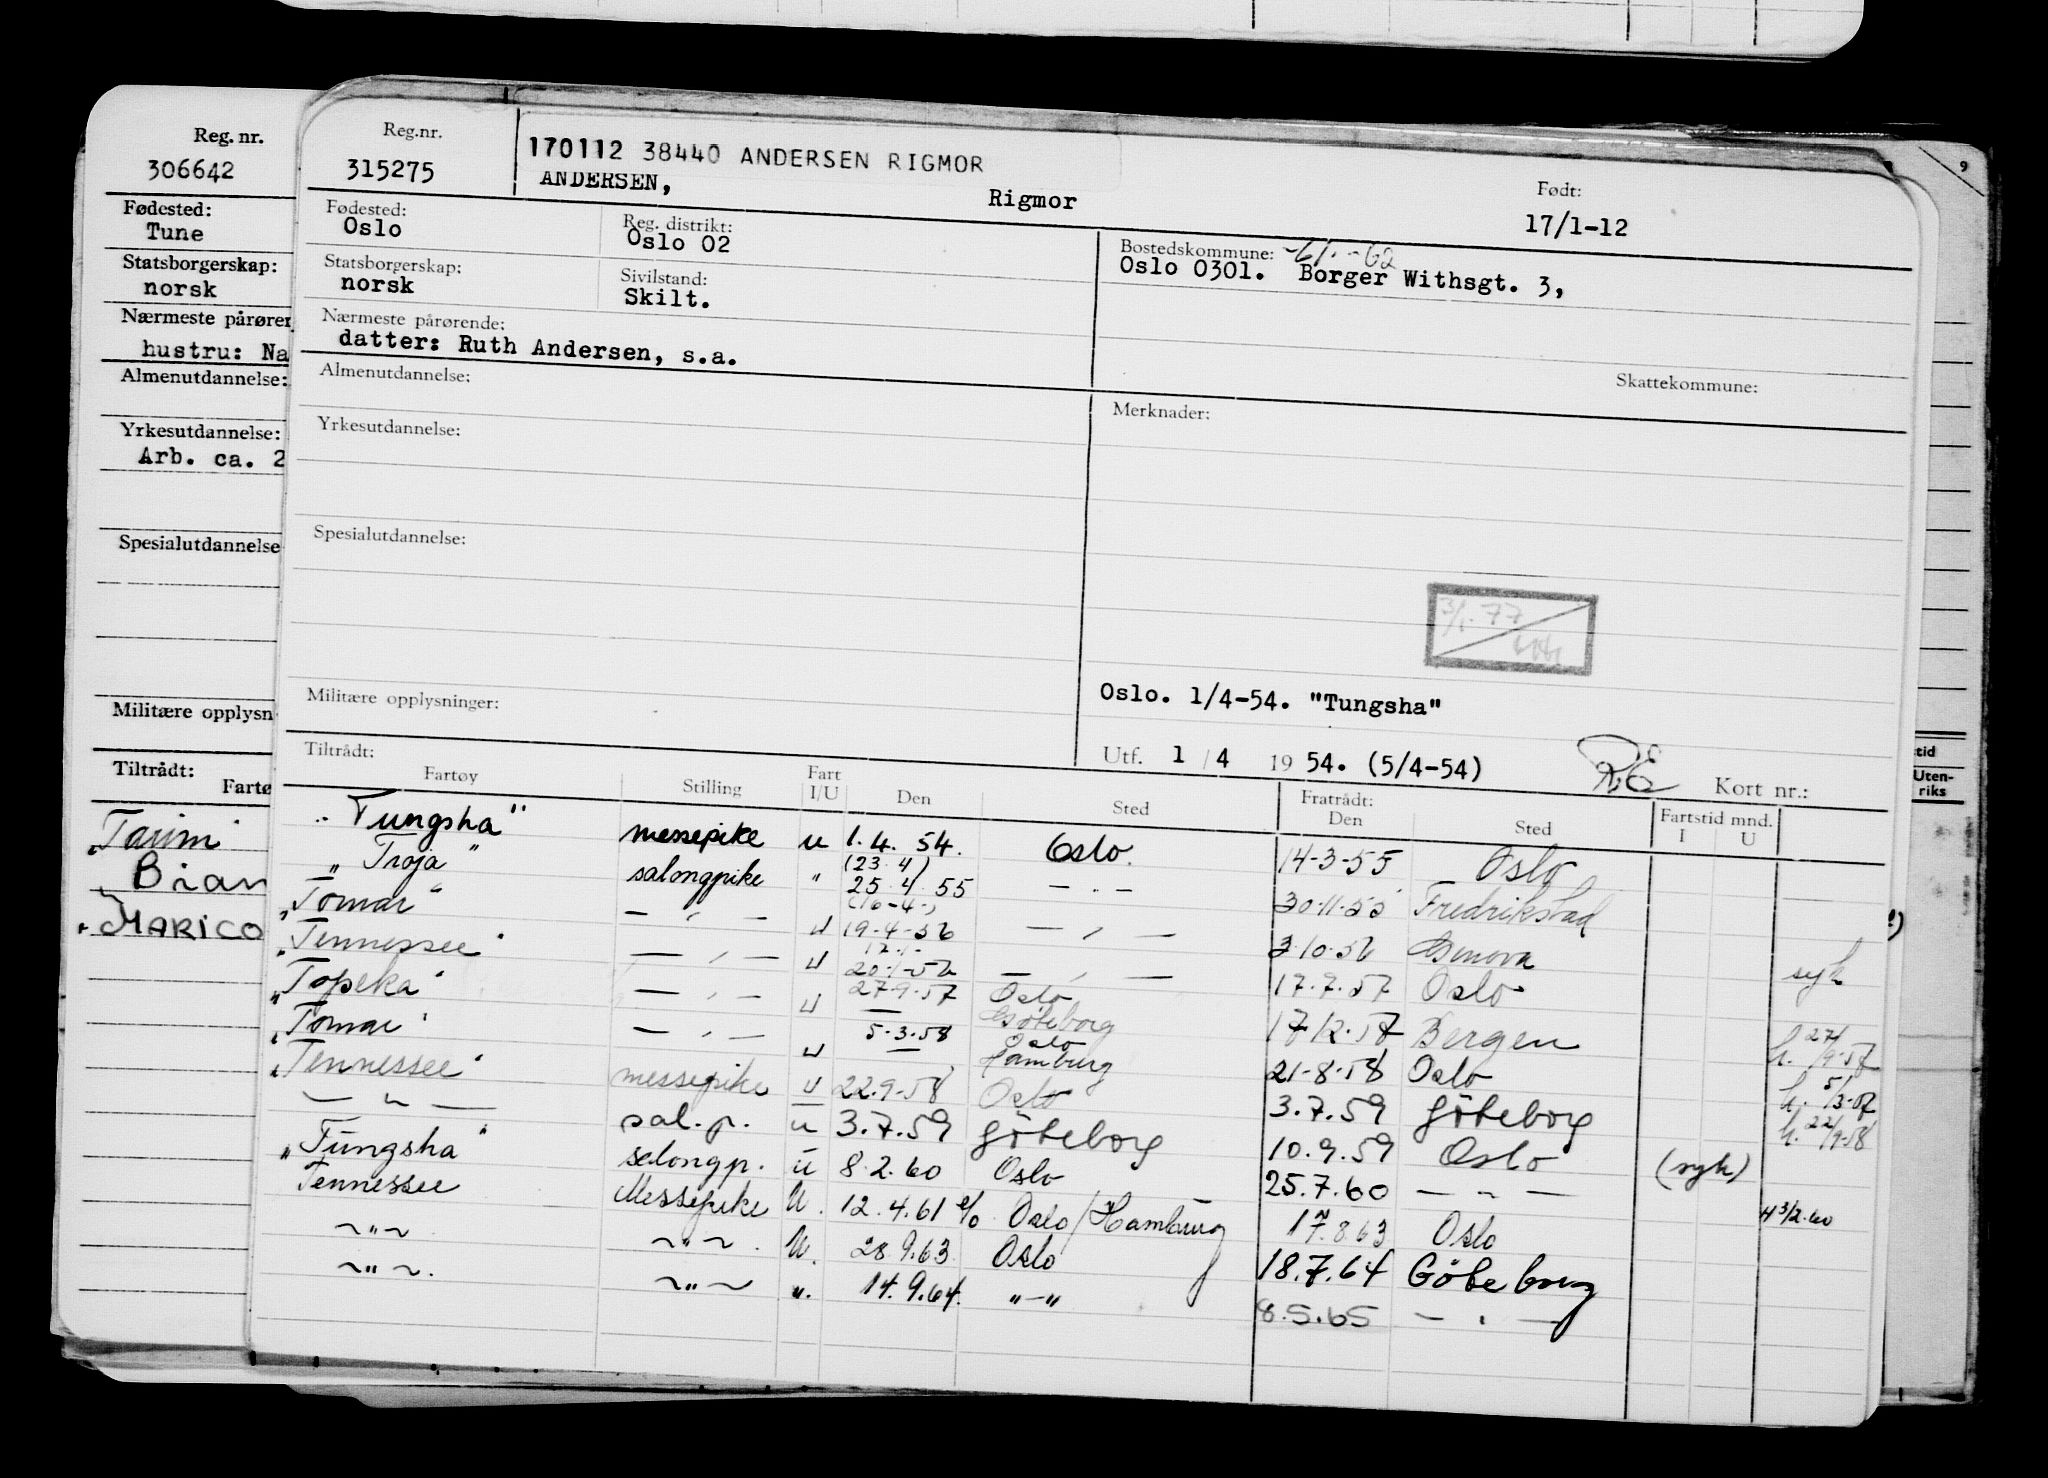 Reg. nr.
306642
Fødested:
Tune
Statsborgerskap:
norsk
Nærmeste pårører
hustru: Na
Almenutdannelse:
Yrkesutdannelse:
Arb. ca. 2
Spesialutdannelse
Militære opplysn
Tiltrådt:
Fartø
"Taurni"
Brian
"MARICO
Reg.nr.
315275
170112 38440 ANDERSEN RIGMOR
ANDERSEN, Rigmor
Født:
17/1-12
Fødested:
Oslo
Reg. distrikt:
Oslo 02
Bostedskommune: -61.-62
Oslo 0301. Borger Withsgt. 3,
Statsborgerskap:
norsk
Sivilstand:
Skilt.
Nærmeste pårørende:
datter: Ruth Andersen, s.a.
Skattekommune:
Almenutdannelse:
Merknader:
Yrkesutdannelse:
Spesialutdannelse:
3/1.77
Militære opplysninger:
Oslo. 1/4-54. "Tungsha"
Utf. 1 / 4 19 54. (5/4-54)
Kort nr.:
Tiltrådt:
Fartøy Stilling Fart I/U Den Sted Fratrådt: Den Sted Fartstid mnd. I U
"Tungsha" messepike u 1.4.54. Oslo. 14-3-55 Oslo
"Troja" salongpike " (23.4) 25.4.55 — " — 30-11-55 Fredrikstad
"Tomar" — " — u (16-4-) 19-4-56 — " — 3-10-56 Genova syk
"Tennessee" — " — u 12-1- 20-1-57 — " — 17.7.57 Oslo
"Topeka" — " — u 27-9-57 Oslo Göteborg 17-12-57 Bergen h. 27/9-57
"Tomar" — " — u 5-3-58 Oslo Hamburg 21-8-58 Oslo h. 5/3-58
"Tennessee" messepike u 22.9-58 Oslo 3.7.59 Göteborg h. 22/9-58
— " — sal.p. u 3.7.59 Göteborg 10.9.59 Oslo (syk)
"Tungsha" salongp. u 8.2.60 Oslo 25.7.60 — " — H 3/2.60
Tennessee Messepike U. 12.4.61 Oslo/Hamburg 17.8.63 Oslo
— " — — " — U. 28.9.63 Oslo 18.7.64 Göteborg
— " — — " — ". 14.9.64. " — " 8.5.65 — " —
9
tid
Uten-
riks